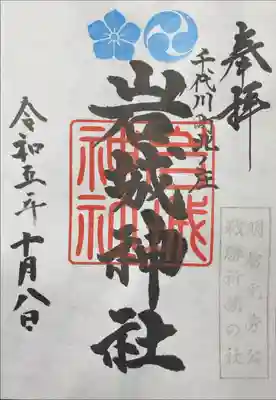 奉拝
千代川町北ノ庄
岩城神社
岩城
神社
令和五年十月八日
明智光秀公
戦勝祈願の社